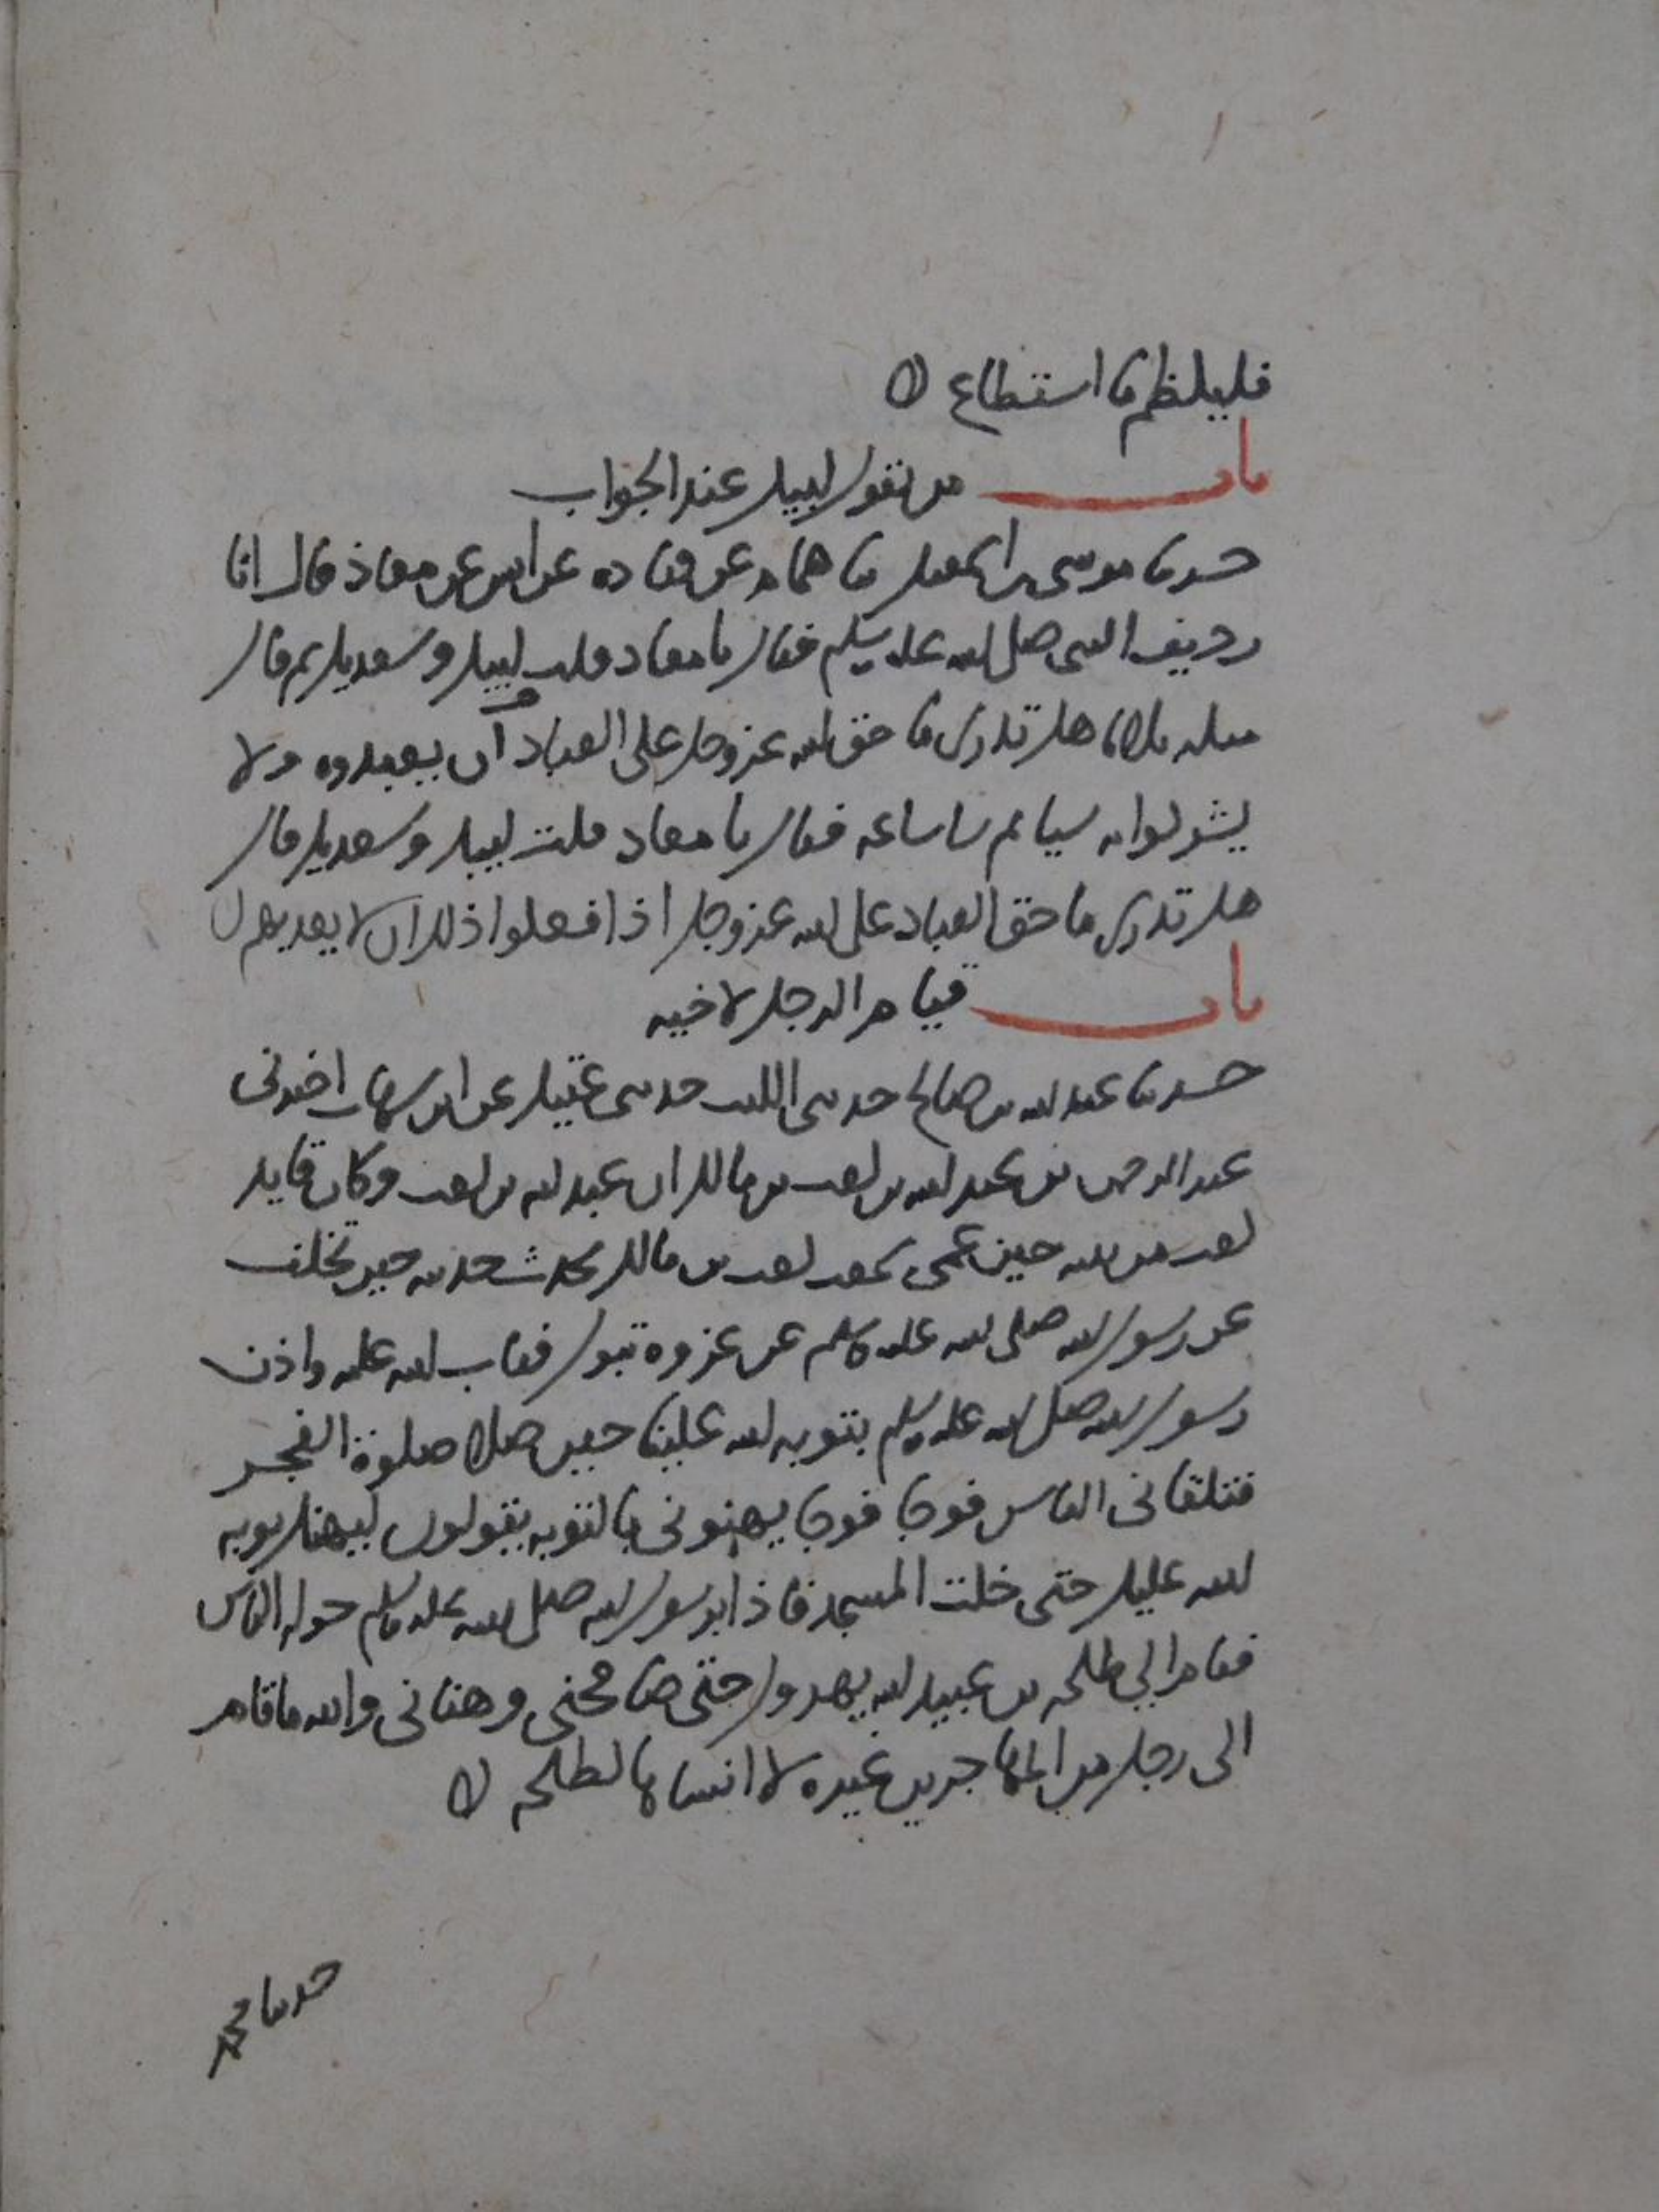 فليكظم ما استطاع
باب من يقول لبيك عند الجواب
حدثنا موسى بن اسمعيل ثنا همام عن قتاده عن انس عن معاذ قال انا
رديف النبي صلى الله عليه وسلم فقال يا معاذ قلت لبيك وسعديك ثم قال
مثله ثلاثا هل تدري ما حق الله عز وجل على العباد ان يعبدوه ولا
يشركوا به شيا ثم سار ساعه فقال يا معاذ قلت لبيك وسعديك قال
هل تدري ما حق العباد على الله عز وجل اذا فعلوا ذلك ان لا يعذبهم
باب قيام الرجل لاخيه
حدثنا عبد الله بن صالح حدثني الليث حدثني عقيل عن ابن شهاب اخبرني
عبد الرحمن بن عبد الله بن كعب بن مالك ان عبد الله بن كعب وكان قايد
كعب من بنيه حين عمي سمعت كعب بن مالك يحدث حديثه حين تخلف
عن رسول الله صلى الله عليه وسلم عن غزوة تبوك فتاب الله عليه واذن
رسول الله صلى الله عليه وسلم بتوبه الله علينا حين صلى صلوة الفجر
فتلقاني الناس فوجا فوجا يهنوني بالتوبه يقولون ليهنك توبه
الله عليك حتى خلت المسجد فاذا برسول الله صلى الله عليه وسلم حوله الناس
فقام الي طلحه بن عبيد الله يهرول حتى صافحني وهناني والله ما قام
الى رجل من المهاجرين غيره لا انساها لطلحه
حدثنا محمد